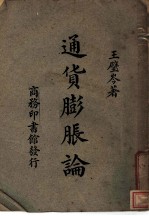 王璧岑著
通貨膨脹論
商務印書館發行